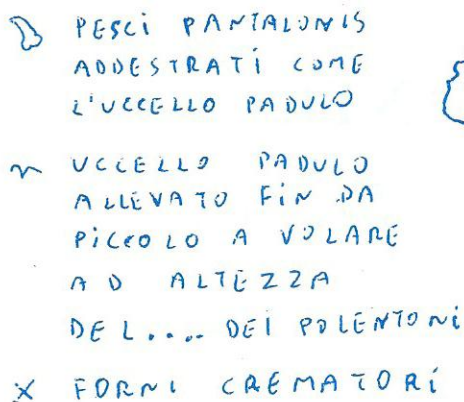 PESCI PANTALONIS
ADDESTRATI COME
L'UCCELLO PADULO
UCCELLO PADULO
ALLEVATO FIN DA
PICCOLO A VOLARE
AD ALTEZZA
DEL.... DEI POLENTONI
X FORNI CREMATORI